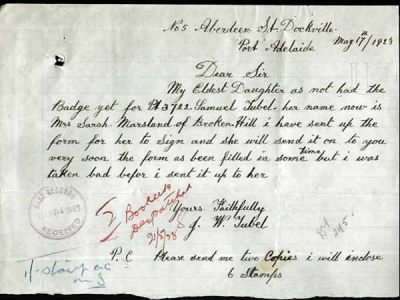 No 5 Aberdeen St. Dockville
Port Adelaide May 17th / 1923
Dear Sir
My Eldest Daughter as not had the
Badge yet for 3722. Samuel Tubel. her name now is
Mrs Sarah. Marsland of Broken-Hill i have sent up the
form for her to Sign and she will send it on to you
very soon the form as been filled in some time but i was
taken bad befor i sent it up to her
Yours Faithfully
J. W. Tubel
P. C Please send me two Copies i will enclose
6 Stamps
2 Booklets
Despatched
RECEIVED